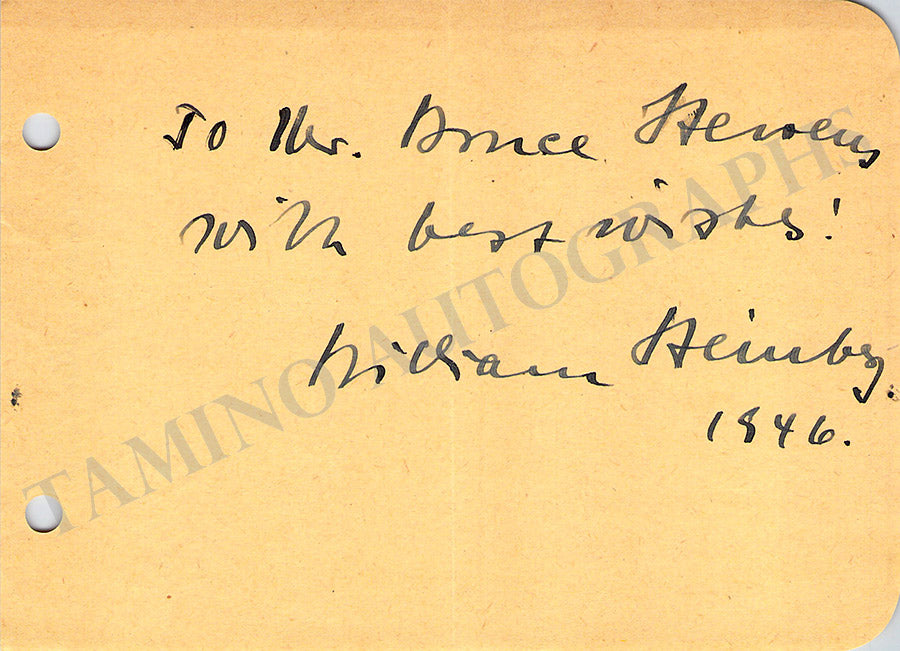 To Mr. Bruce Stevens
with best wishes!
William Steinberg
1946.
TAMINO AUTOGRAPHS